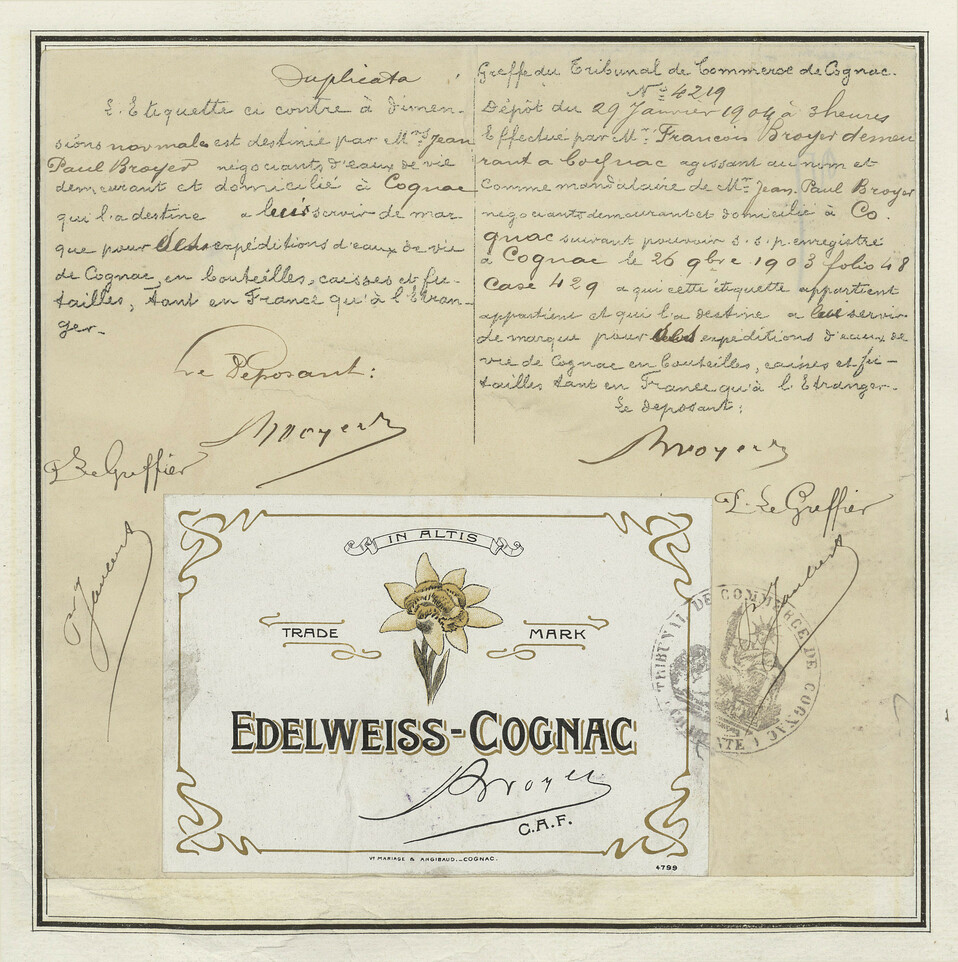 Duplicata
L'Etiquette ci contre à dimen-
sions normales est destinée par Mr Jean
Paul Broyer négociant, d'eaux de vie
demeurant et domicilié à Cognac
qui l'a destine a lui servir de mar-
que pour expéditions d'eaux de vie
de Cognac, en bouteilles, caisses et fu-
tailles, tant en France qu'à l'Etran-
ger-
Le Déposant:
Broyer
P. Le Greffier
Greffe du Tribunal de Commerce de Cognac.
No 4219
Dépôt du 29 Janvier 1904 à 3 heures
Effectué par Mr Francois Broyer demeu
rant a Cognac agissant au nom et
comme mandataire de Mr Jean Paul Broyer
négociant demeurant et domicilié à Co-
gnac suivant pouvoir s.s.p. enregistré
à Cognac le 26 9bre 1903 folio 48
Case 429 a qui cette étiquette appartient
appartient et qui l'a destine a lui servir
de marque pour expéditions d'eaux de
vie de Cognac en bouteilles, caisses et fu-
tailles tant en France qu'à l'Etranger-
Le deposant:
Broyer
P. Le Greffier
Jaubert
IN ALTIS
TRADE MARK
EDELWEISS-COGNAC
Broyer
C.A.F.
VT MARIAGE & ANGIBAUD._COGNAC.
4799
TRIBUNAL DE COMMERCE DE COGNAC